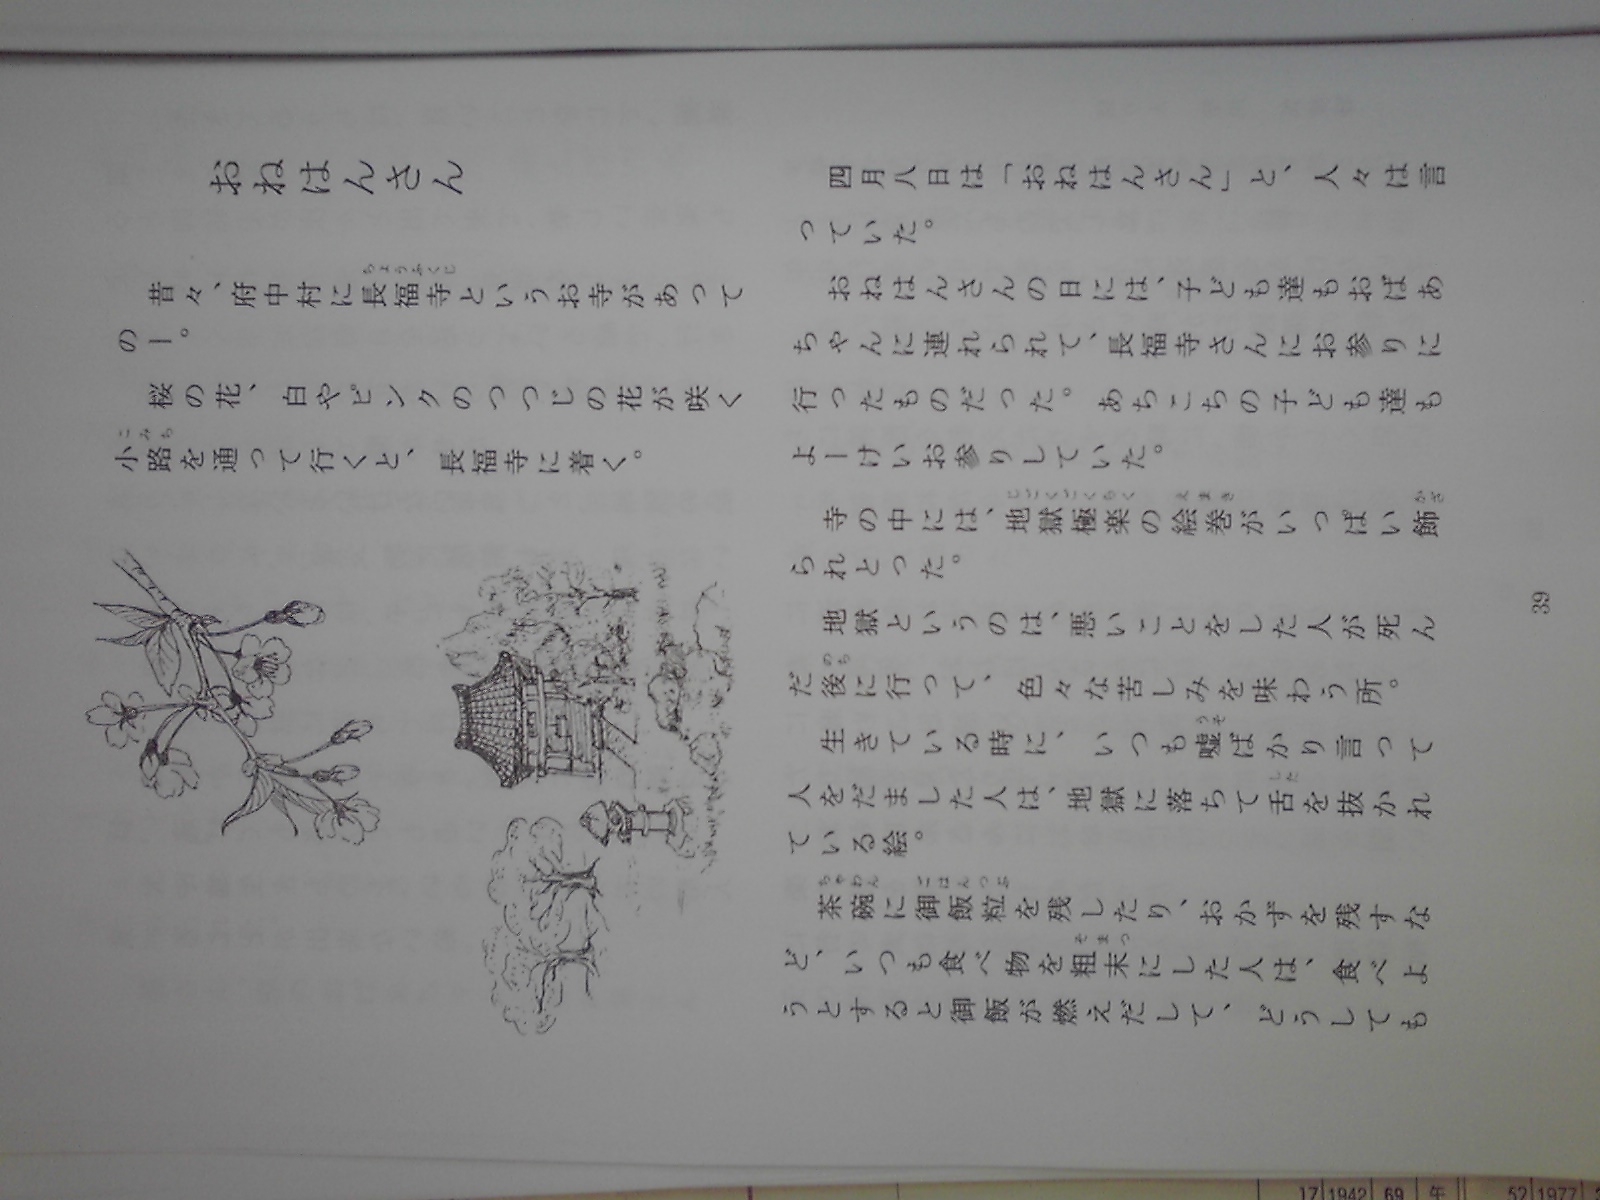 おねはんさん
昔々、府中村に長福寺というお寺があって
ちょうふくじ
のー。
桜の花、白やピンクのつつじの花が咲く
小路を通って行くと、長福寺に着く。
こみち
四月八日は「おねはんさん」と、人々は言
っていた。
おねはんさんの日には、子ども達もおばあ
ちゃんに連れられて、長福寺さんにお参りに
行ったものだった。あちこちの子ども達も
よーけいお参りしていた。
寺の中には、地獄極楽の絵巻がいっぱい飾
じごくごくらく
えまき
かざ
られとった。
地獄というのは、悪いことをした人が死ん
だ後に行って、色々な苦しみを味わう所。
のち
生きている時に、いつも嘘ばかり言って
うそ
人をだました人は、地獄に落ちて舌を抜かれ
した
ている絵。
茶碗に御飯粒を残したり、おかずを残すな
ちゃわん
ごはんつぶ
ど、いつも食べ物を粗末にした人は、食べよ
そまつ
うとすると御飯が燃えだして、どうしても
39
17 1942 69 午
52 1977